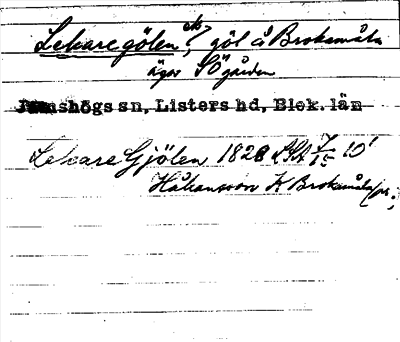 Lekaregölen, göl å Broksmåla
äges Sögården
Jämshögs sn, Listers hd, Blek. län
Lekare Gjölen 1828 7/15 10'
Håkansson K Broksmåla